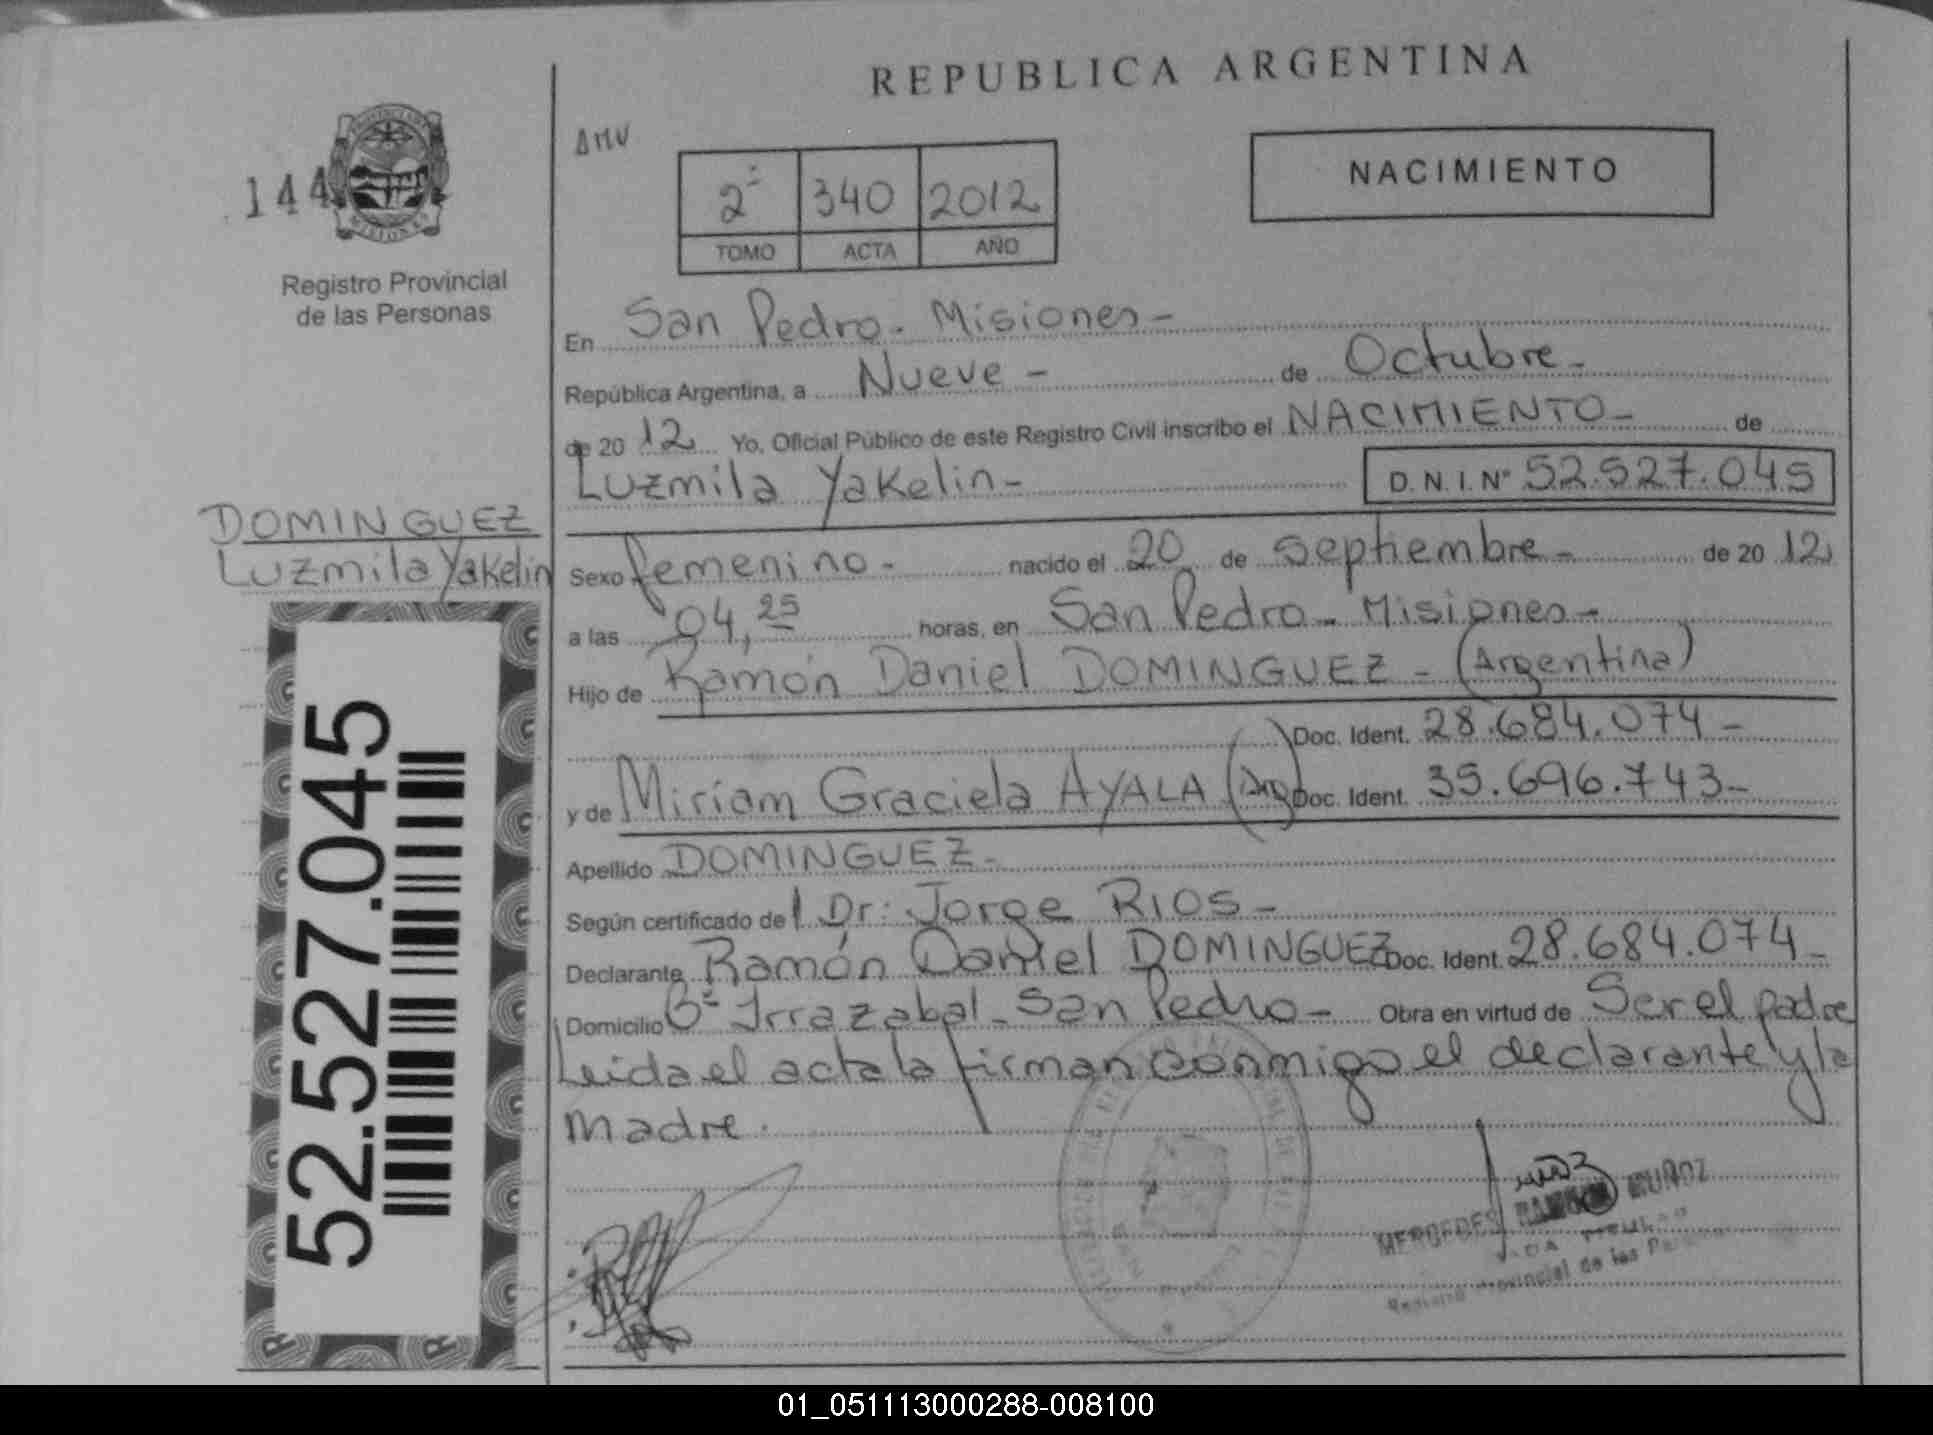 REPUBLICA ARGENTINA
144
MISIONES
Registro Provincial
de las Personas
AMV
2º 340 2012
TOMO ACTA AÑO
NACIMIENTO
En San Pedro - Misiones -
República Argentina, a Nueve - de Octubre -
de 20 12 Yo, Oficial Público de este Registro Civil inscribo el NACIMIENTO - de
Luzmila Yakelin - D.N.I. Nº 52.527.045
DOMINGUEZ
Luzmila Yakelin
Sexo femenino - nacido el 20 de Septiembre - de 20 12
a las 04,25 horas, en San Pedro - Misiones -
Hijo de Ramón Daniel DOMINGUEZ - (Argentina)
Doc. Ident. 28.684.074 -
y de Miriam Graciela AYALA (Arg) Doc. Ident. 35.696.743 -
Apellido DOMINGUEZ -
Según certificado de Dr: Jorge RIOS -
Declarante Ramón Daniel DOMINGUEZ Doc. Ident. 28.684.074 -
Domicilio Bº Irrazabal - San Pedro - Obra en virtud de Ser el padre
Leida el acta la firman conmigo el declarante y la
madre.
52.527.045
MERCEDES RAMON MUÑOZ
Registro Provincial de las
01_051113000288-008100